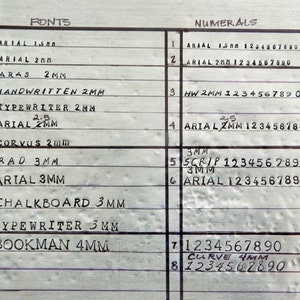 FONTS
NUMERALS
ARIAL 1.5MM
1 ARIAL 1.5MM 1234567890
ARIAL 2MM
2 ARIAL 2MM 1234567890
ARAS 2MM
HANDWRITTEN 2MM
3 HW 2MM 1234567890
TYPEWRITER 2MM
2.5
ARIAL 2MM
2.5
4 ARIAL 2MM 12345678
CORVUS 2mm
3MM
RAD 3MM
5 SCRIP 123456789
3MM
ARIAL 3MM
6 ARIAL 12345678
CHALKBOARD 3MM
TYPEWRITER 3MM
BOOKMAN 4MM
7 1234567890
CURVE 4MM
8 1234567890